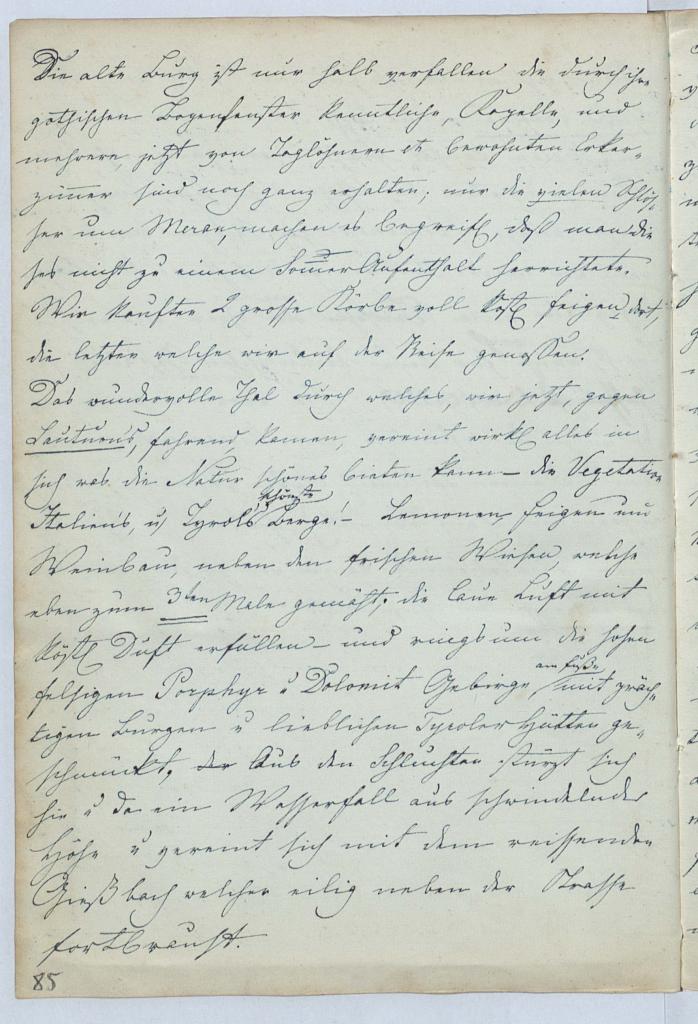 Die alte Burg ist nur halb verfallen die durch ihre
gothischen Bogenfenster kenntliche, Kapelle, und
mehrere, jetzt von Taglöhnern etc bewohnten Erker-
zimmer sind noch ganz erhalten; nur die vielen Schlös-
ser um Meran, machen es begreifl, daß man die
ses nicht zu einem Sommer Aufenthalt herrichtete.
Wir kauften 2 grosse Körbe voll köstl Feigen dort,
die letzten welche wir auf der Reise genossen.
Das wundervolle Thal durch welches, wir jetzt, gegen
fahrend kamen, vereint wirkl alles in
sich was die Natur schönes bieten kann – die Vegetation
Italiens, u Tyrols schönste Berge! – Lemonen, Feigen und
Weinbau, neben den frischen Wiesen, welche
eben zum 3ten Male gemäht, die laue Luft mit
köstl Duft erfüllen – und rings um die hohen
felsigen Porphyr u Dolomit Gebirge, am Fuße mit präch-
tigen Burgen u lieblichen Tyroler Hütten ge-
schmückt, der Aus den Schluchten stürzt sich
hie u da ein Wasserfall aus schwindelnder
Höhe u vereint sich mit dem reissenden
Gießbach welcher eilig neben der Strasse
fortbraust.
85